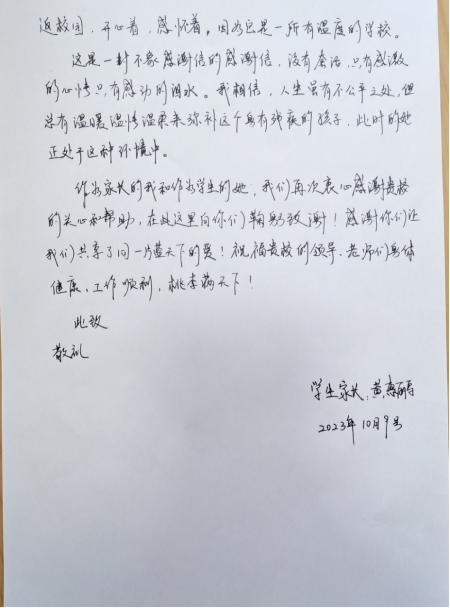 返校园，开心着，感怀着。因为这是一所有温度的学校。
这是一封不像感谢信的感谢信，没有套话，只有感激
的心情只有感动的泪水。我相信，人生虽有不公平之处，但
总有温暖温情温柔来弥补这个身有残疾的孩子，此时的她
正处于这种环境中。
作为家长的我和作为学生的她，我们再次衷心感谢贵校
的关心和帮助，在此这里向你们鞠躬致谢！感谢你们让
我们共享了同一片蓝天下的爱！祝福贵校的领导、老师们身体
健康、工作顺利，桃李满天下！
此致
敬礼
学生家长：黄惠
2023年10月9号